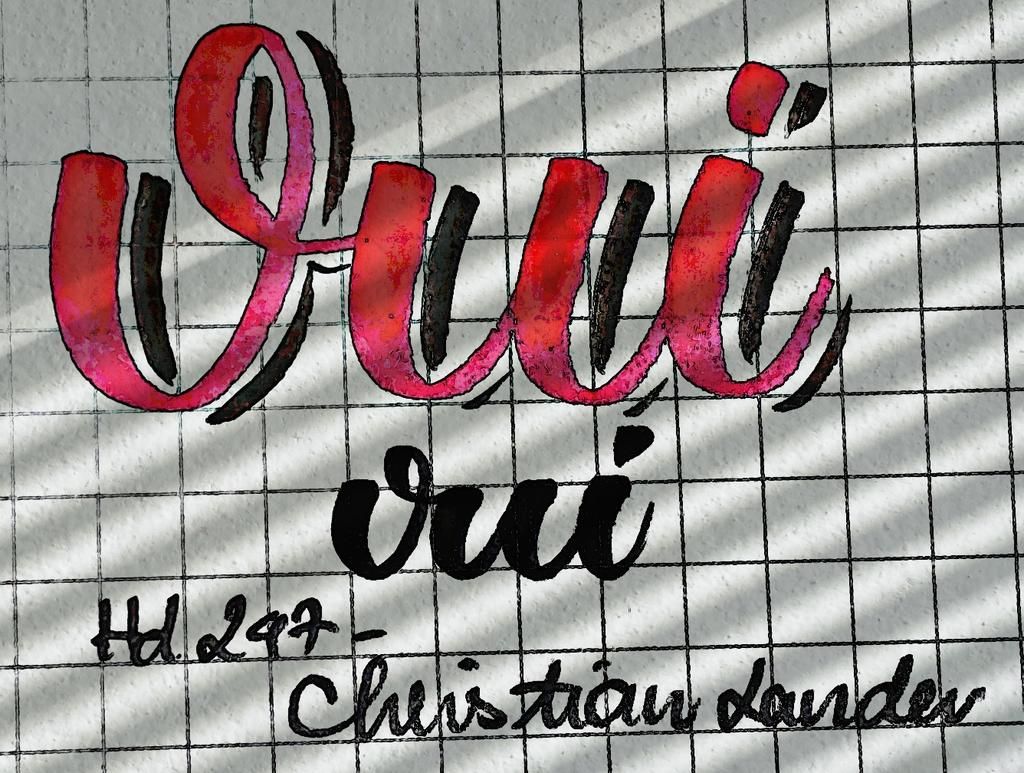 Vui
vui
Hd. 247 -
Christian Lander